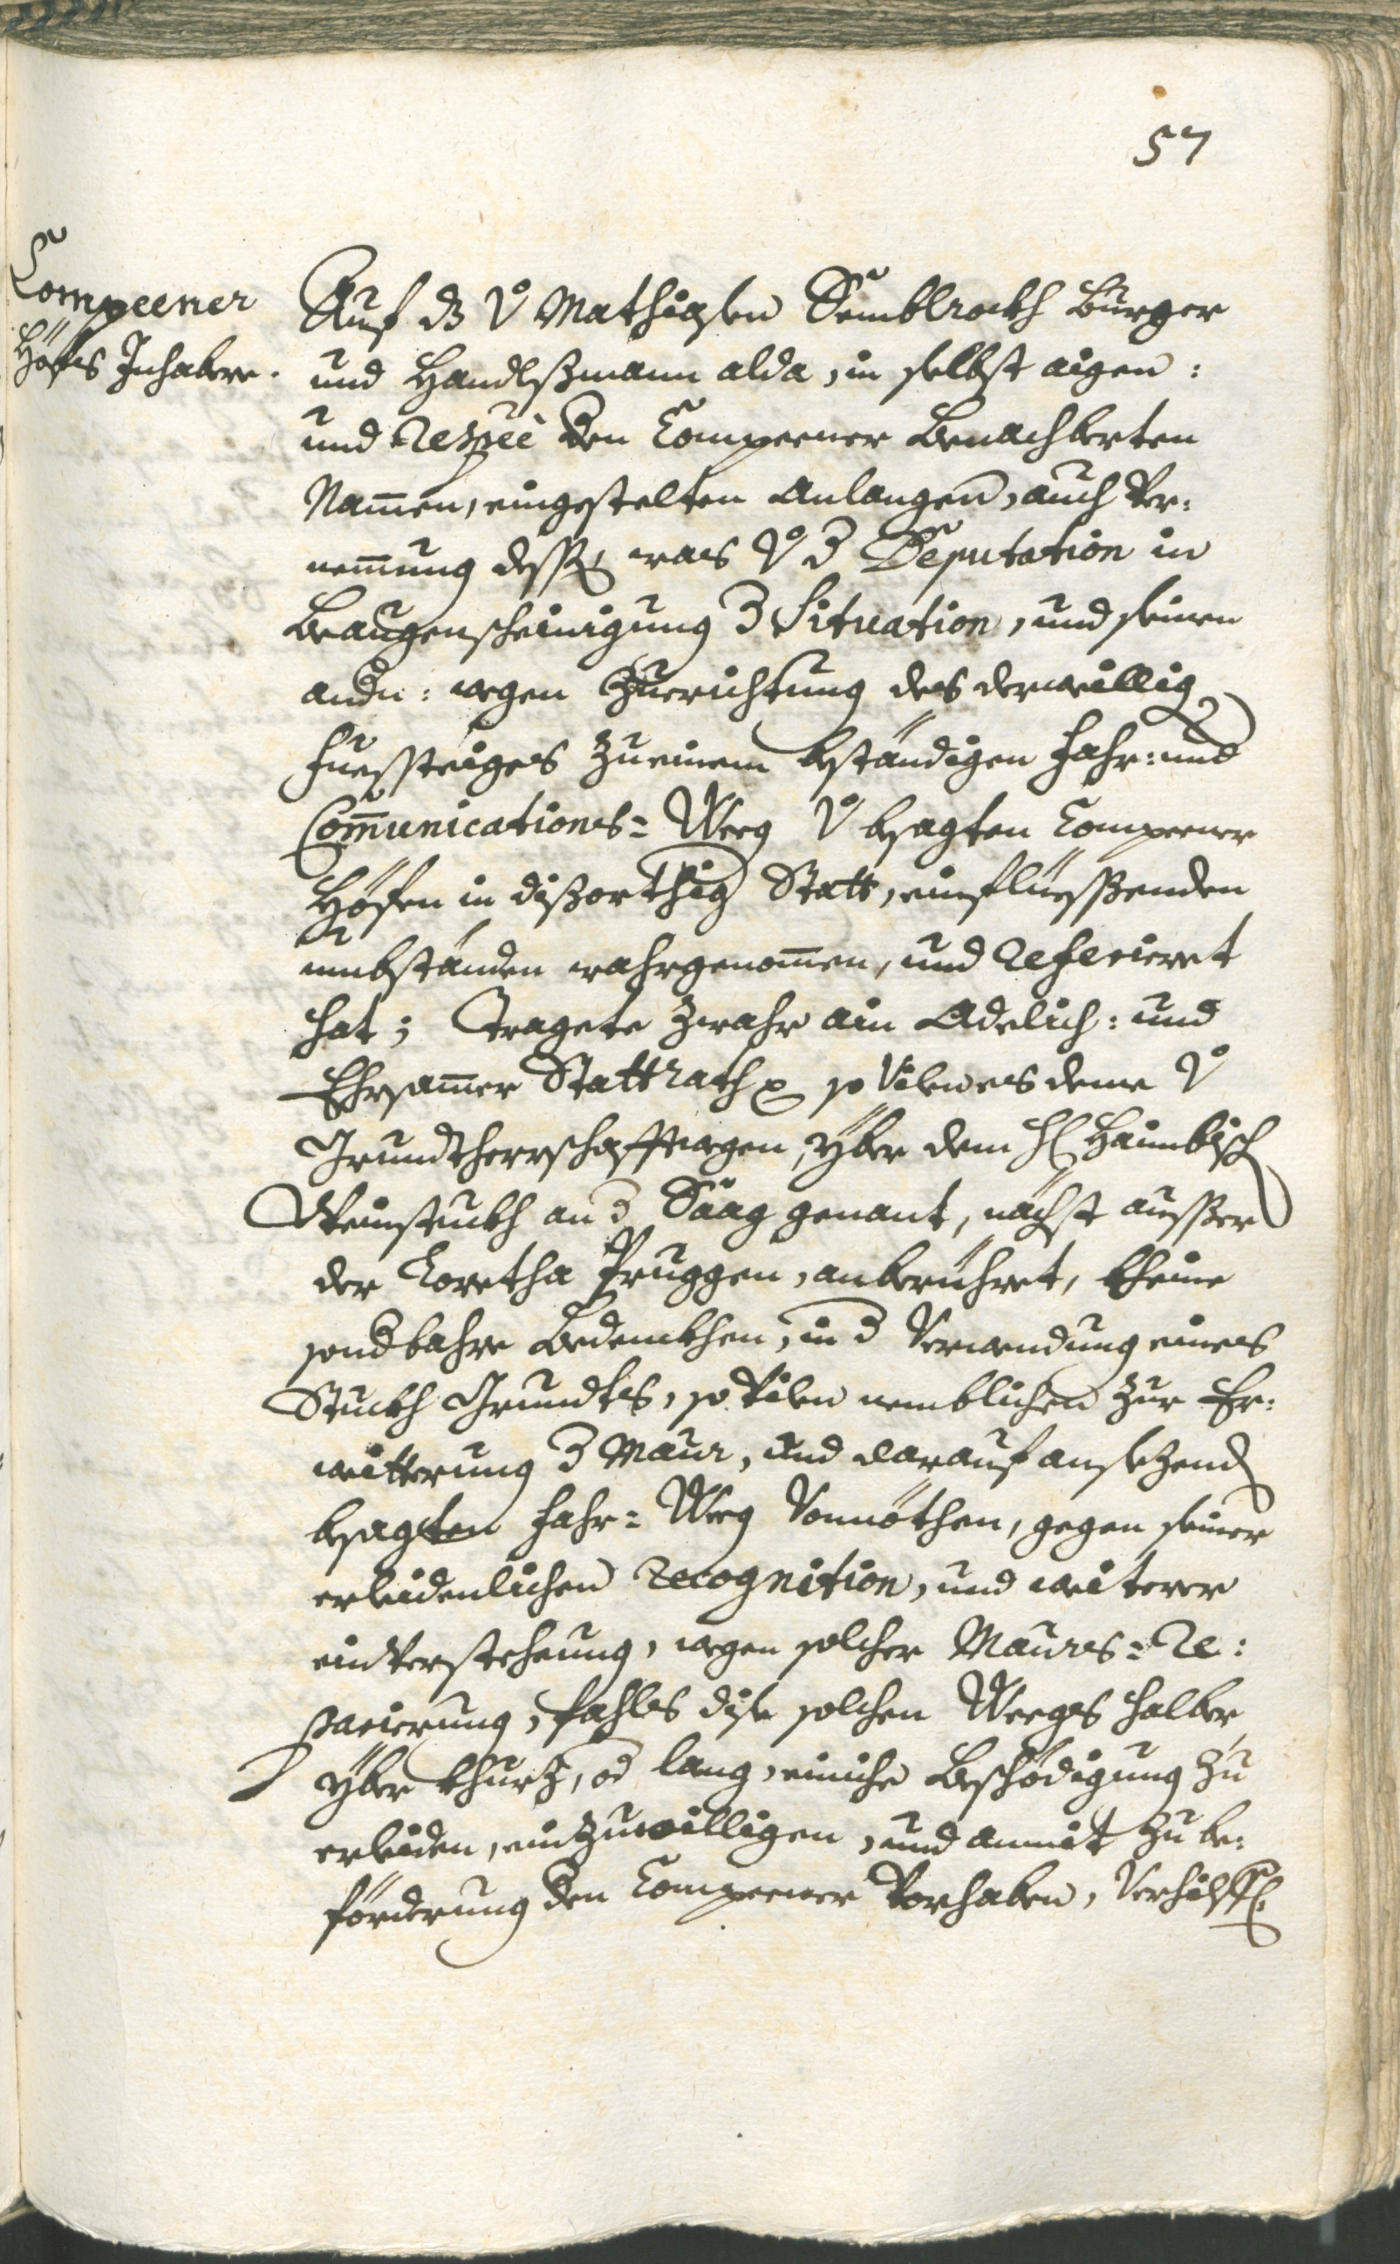 57
Compeener
Höfes Inhabere.
Auf dz v Mathiasen Semblrockh Burger
und Handlßmann alda, in selbst aigen:
und respèe den Compeener Benachberten
Nam̄en, eingestelten Anlangen, auch Ver:
nem̄ung dessen was v d Deputation in
Beaugenscheinigung d Situation, und seinen
andn: wegen Zuerichtung des derweillig
Fuessteiges zu einem beständigen Fahr: und
Com̄unications= Weeg v besagten Compeener
Höfen in dißorthig Statt, einfliessenden
umbständen wahrgenom̄en, und referieret
hat; Tragete zwahr ain Adelich: und
Ehrsam̄er Stattrath so Vil es deme v
Grundtherrschafftwegen, yber dem H Haimbisch
Weinstukh an d Säag genant, nächst ausser
der Loretha Pruggen, anberühret, kheine
sondbahre Bedenkhen, in d Verwendung eines
Stuckh Grundts, so Vilen nemblichen zur Er:
weitterung d Maur, und darauf ansezend
besagten Fahr= Weeg Vonnöthen, gegen seiner
erleidenlichen recognition, und weiterer
einverstehung, wegen solcher Maures= Re:
parierung, fahls dise solchen Weegs halber
yber khurz, od lang, einiche Beschödigung zu
erleiden, einzuwilligen, und anmit zu be:
förderung den Compeener Vorhaben, Verhilff